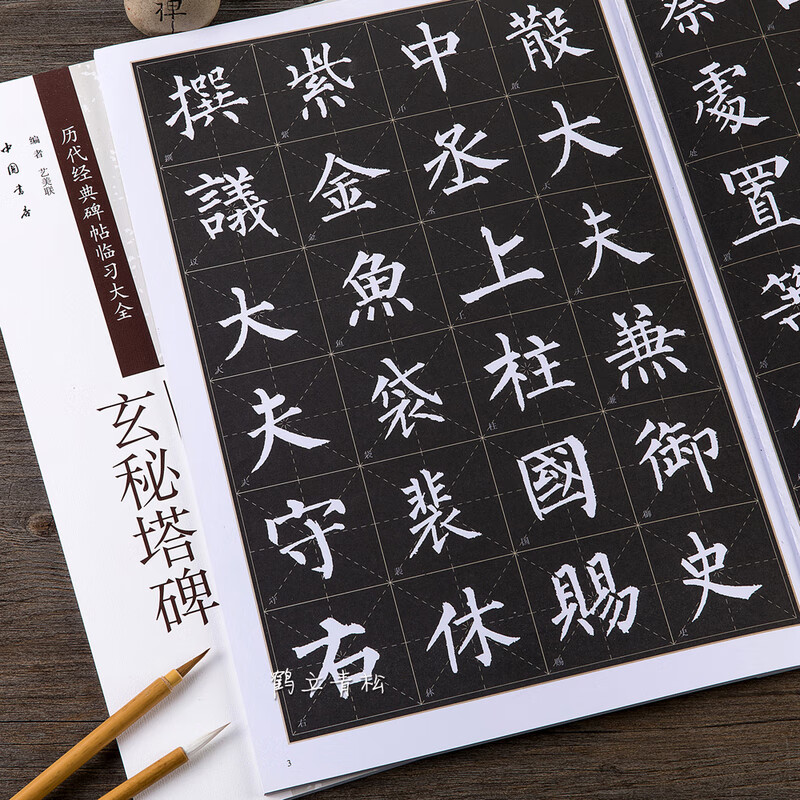 禪
历代经典碑帖临习大全
编者 艺美联
中国书店
玄秘塔碑
察處置等
散大夫兼御史
中丞上柱國賜
紫金魚袋裴休
撰議大夫守右
鹤立青松
3